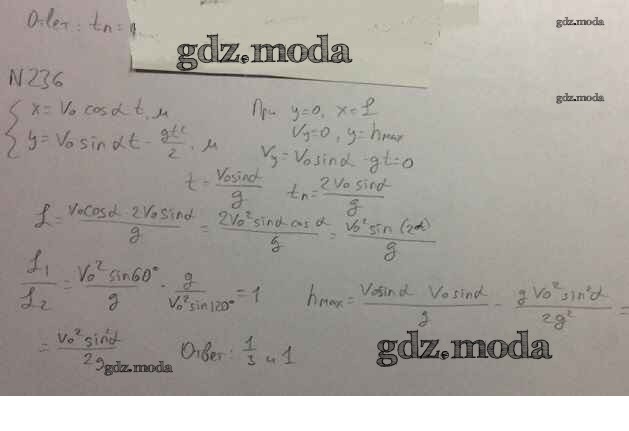 Ответ: tп =
gdz.moda
gdz.moda
N236
gdz.moda
{ x = V₀ cosα t, м
При y=0, x=L
y = V₀ sinαt - gt²/2, м
Vy=0, y=hmax
Vy = V₀sinα - gt = 0
t = V₀sinα/g tп = 2V₀sinα/g
L = V₀cosα · 2V₀sinα/g = 2V₀²sinα cosα/g = V₀²sin(2α)/g
L₁/L₂ = V₀²sin60°/g · g/V₀²sin120° = 1
hmax = V₀sinα V₀sinα/g - gV₀²sin²α/2g² =
= V₀²sin²α/2g
gdz.moda
Ответ: 1/3 и 1
gdz.moda